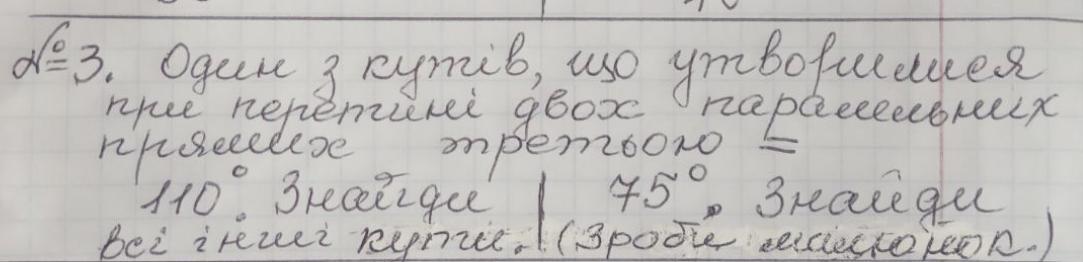 №3. Один з кутів, що утворилися
при перетині двох паралельних
прямих третьою =
110°. Знайди | 75°. Знайди
всі інші кути. (Зроби малюнок.)